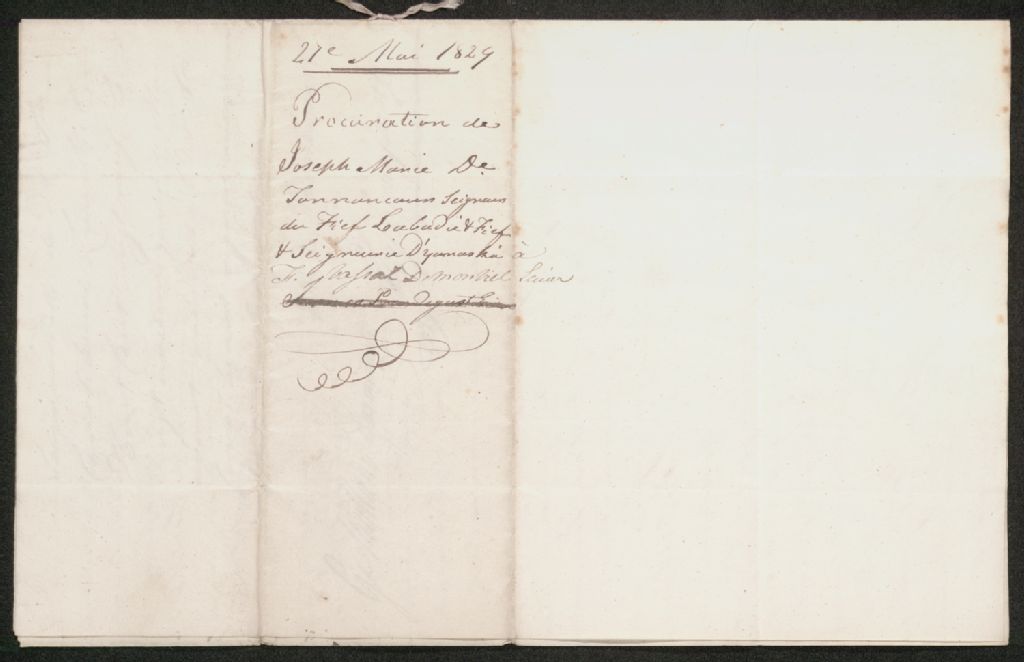 27e Mai 1829
Procuration de
Joseph Marie De
Tonnancour Seigneur
du Fief Labadie & Fief
& Seigneurie D'yamaska à
Demontiel